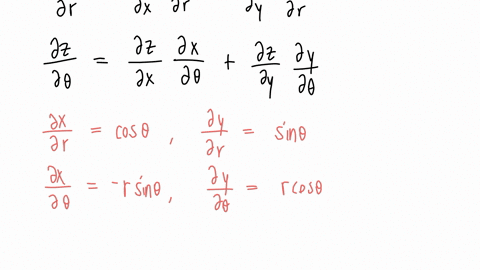 ∂r ∂x ∂r ∂y ∂r
∂z/∂θ = ∂z/∂x ∂x/∂θ + ∂z/∂y ∂y/∂θ
∂x/∂r = cosθ, ∂y/∂r = sinθ
∂x/∂θ = -rsinθ, ∂y/∂θ = rcosθ